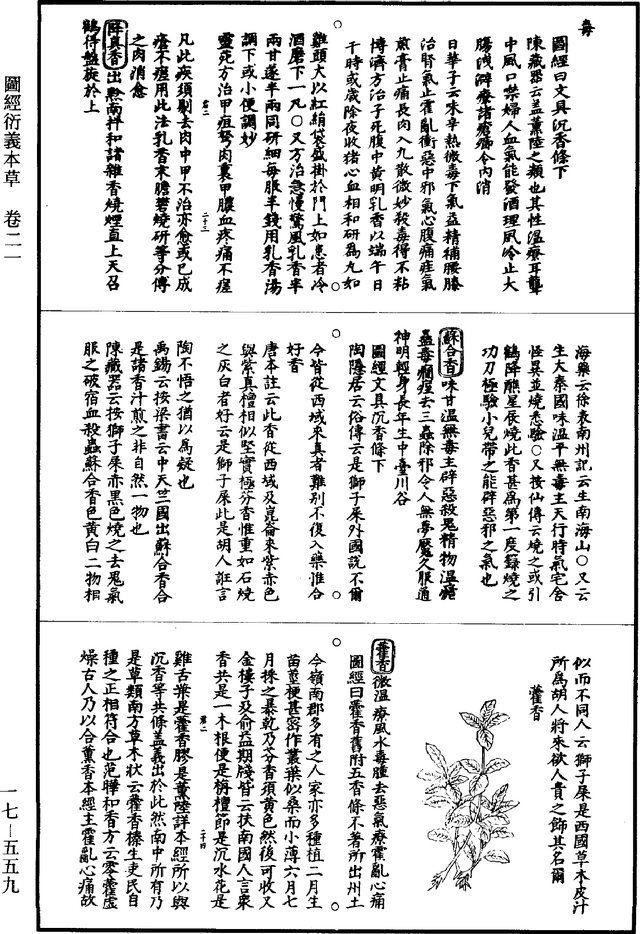 毒
圖經曰文具沉香條下
陳藏器云蓋薰陸之類也其性溫療耳聾
中風口禁婦人血氣能發酒理風冷止大
腸洩澼療諸瘡癤令內消
日華子云味辛熱微毒下氣益精補腰膝
治腎氣止霍亂衝惡中邪氣心腹痛疰氣
煎膏止痛長肉入丸散微炒殺毒得不粘
博濟方治子死腹中黃明乳香以端午日
午時或歲除夜收猪心血相和研爲丸如
雞頭大以紅絹袋盛掛於門上如患者冷
酒磨下一丸〇又方治急慢驚風乳香半
兩甘遂半兩同研細每服半錢用乳香湯
調下或小便調妙
靈苑方治甲疽弩肉裹甲膿血疼痛不瘥
凡此疾須剔去肉中甲不治亦愈或已成
瘡不瘥用此法乳香末膽礬燒研等分傅
之肉消愈
降真香出黔南拌和諸雜香燒煙直上天召
鶴得盤旋於上
海藥云徐表南州記云生南海山〇又云
生大秦國味溫平無毒主天行時氣宅舍
怪異並燒悉驗〇又按仙傳云燒之或引
鶴降醮星辰燒此香甚爲第一度籙燒之
功力極驗小兒帶之能辟惡邪之氣也
蘇合香味甘溫無毒主辟惡殺鬼精物溫瘧
蠱毒癇痓去三蟲除邪令人無夢魘久服通
神明輕身長年生中臺川谷
圖經文具沉香條下
陶隱居云俗傳云是獅子屎外國說不爾
今皆從西域來真者難別不復入藥惟合
好香
唐本註云此香從西域及崑崙來紫赤色
與紫真檀相似堅實極芬香惟重如石燒
之灰白者好云是獅子屎此是胡人誑言
陶不悟之猶以爲疑也
禹錫云按梁書云中天竺國出蘇合香合
是諸香汁煎之非自然一物也
陳藏器云按獅子屎赤黑色燒之去鬼氣
服之破宿血殺蟲蘇合香色黃白二物相
似而不同人云獅子屎是西國草木皮汁
所爲胡人將來欲人貴之飾其名爾
藿香
藿香微溫療風水毒腫去惡氣療霍亂心痛
圖經曰藿香舊附五香條不著所出州土
今嶺南郡多有之人家亦多種植二月生
苗莖梗甚密作叢葉似桑而小薄六月七
月採之暴乾乃芬香須黃色然後可收又
金樓子及俞益期牋皆云扶南國人言衆
香共是一木根便是栴檀節是沉水花是
雞舌葉是藿香膠是薰陸詳本經所以與
沉香等共條蓋義出於此然南中所有乃
是草類南方草木狀云藿香榛生吏民自
種之正相符合也范曄和香方云零藿虛
燥古人乃以合薰香本經主霍亂心痛故
圖經衍義本草　卷二一
一七—五五九